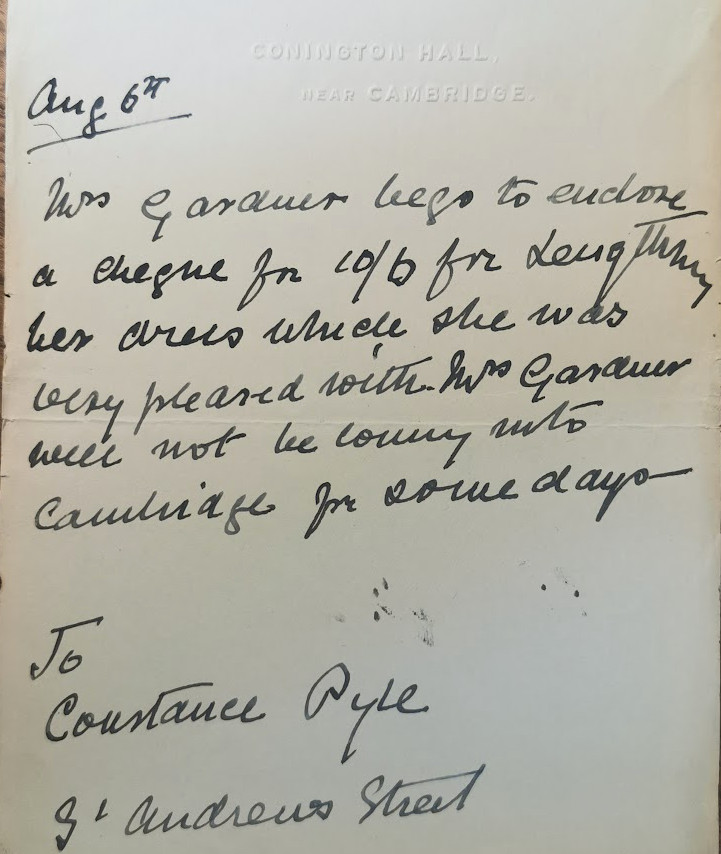 CONINGTON HALL,
NEAR CAMBRIDGE.
Aug 6th
Mrs Gardner begs to enclose
a cheque for 10/6 for Lengthening
her dress which she was
very pleased with. Mrs Gardner
will not be coming into
Cambridge for some days—
To
Constance Pyle
St Andrews Street